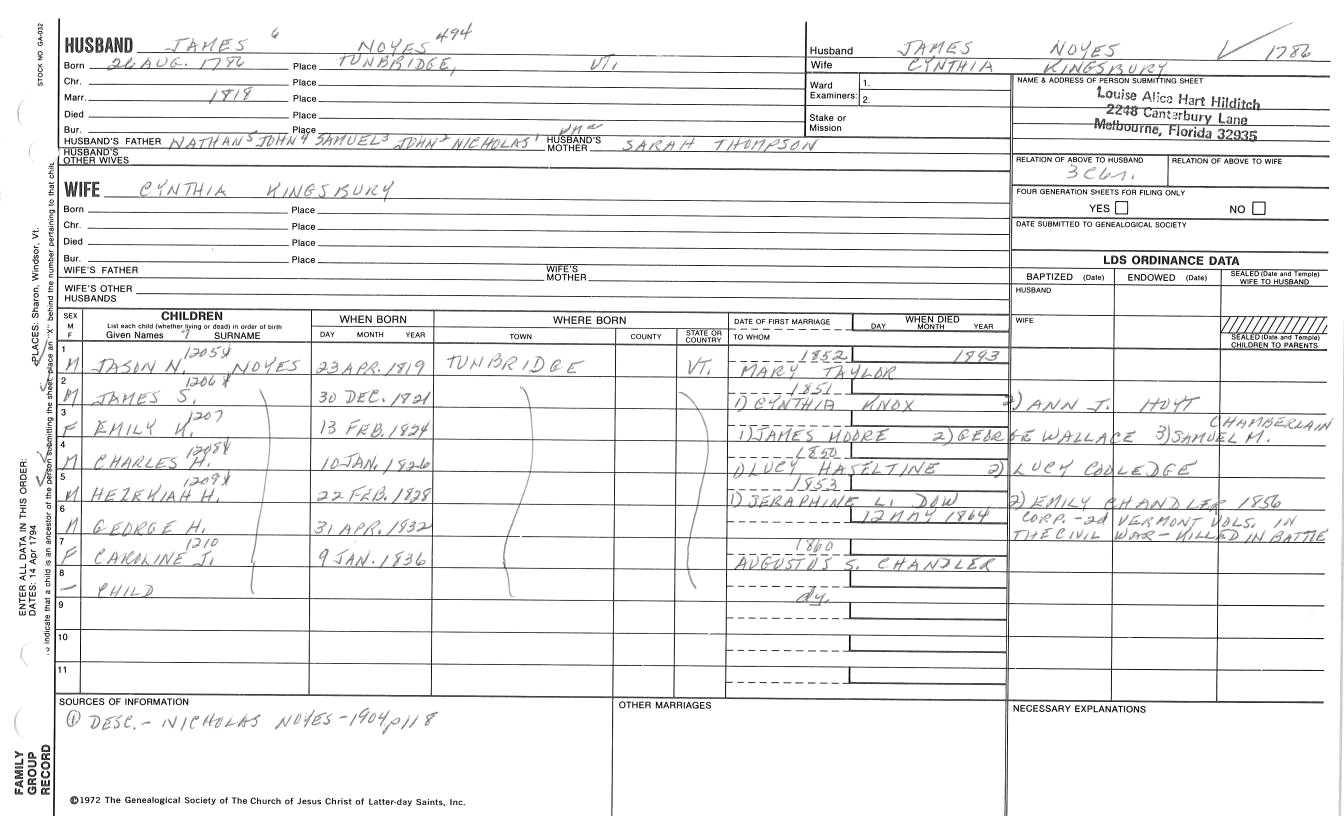 STOCK NO. GA-032
HUSBAND JAMES 6 NOYES 494
Born 26 AUG. 1786 Place TUNBRIDGE, VT.
Chr. Place
Marr. 1818 Place
Died Place
Bur. Place
HUSBAND'S FATHER NATHAN5 JOHN4 SAMUEL3 JOHN2 NICHOLAS1 HUSBAND'S MOTHER SARAH THOMPSON
HUSBAND'S OTHER WIVES
WIFE CYNTHIA KINGSBURY
Born Place
Chr. Place
Died Place
Bur. Place
WIFE'S FATHER WIFE'S MOTHER
WIFE'S OTHER HUSBANDS
Husband JAMES NOYES 1786
Wife CYNTHIA KINGSBURY
Ward Examiners: 1.
2.
Stake or Mission
NAME & ADDRESS OF PERSON SUBMITTING SHEET
Louise Alice Hart Hilditch
2248 Canterbury Lane
Melbourne, Florida 32935
RELATION OF ABOVE TO HUSBAND RELATION OF ABOVE TO WIFE
FOUR GENERATION SHEETS FOR FILING ONLY
YES NO
DATE SUBMITTED TO GENEALOGICAL SOCIETY
LDS ORDINANCE DATA
BAPTIZED (Date) ENDOWED (Date) SEALED (Date and Temple) WIFE TO HUSBAND
HUSBAND
WIFE
SEALED (Date and Temple) CHILDREN TO PARENTS
SEX M F
CHILDREN
List each child (whether living or dead) in order of birth
Given Names 7 SURNAME
WHEN BORN
DAY MONTH YEAR
WHERE BORN
TOWN COUNTY STATE OR COUNTRY
DATE OF FIRST MARRIAGE
TO WHOM
WHEN DIED
DAY MONTH YEAR
1 M JASON N. 1205 NOYES 23 APR. 1819 TUNBRIDGE VT. 1852 1893
MARY TAYLOR
2 M JAMES S. 1206 30 DEC. 1821 1851
1) CYNTHIA KNOX 2) ANN J. HOYT
3 F EMILY K. 1207 13 FEB. 1824
1) JAMES MOORE 2) GEORGE WALLACE 3) SAMUEL M. CHAMBERLAIN
4 M CHARLES H. 1208 10 JAN. 1826 1850
1) LUCY HASELTINE 2) LUCY COOLEDGE
5 M HEZEKIAH H. 1209 22 FEB. 1828 1853
1) SERAPHINE L. DOW 2) EMILY CHANDLER 1856
6 M GEORGE H. 31 APR. 1832 12 MAY 1864 CORP. - 2d VERMONT VOLS. IN
THE CIVIL WAR - KILLED IN BATTLE
7 F CAROLINE J. 1210 9 JAN. 1836 1860
AUGUSTUS S. CHANDLER
8 - CHILD dy.
9
10
11
SOURCES OF INFORMATION
① DESC. - NICHOLAS NOYES - 1904 p118
OTHER MARRIAGES
NECESSARY EXPLANATIONS
©1972 The Genealogical Society of The Church of Jesus Christ of Latter-day Saints, Inc.
FAMILY GROUP RECORD
ENTER ALL DATA IN THIS ORDER:
DATES: 14 Apr 1794
PLACES: Sharon, Windsor, Vt.
to indicate that a child is an ancestor of the person submitting the sheet, place an "X" behind the number pertaining to that child.